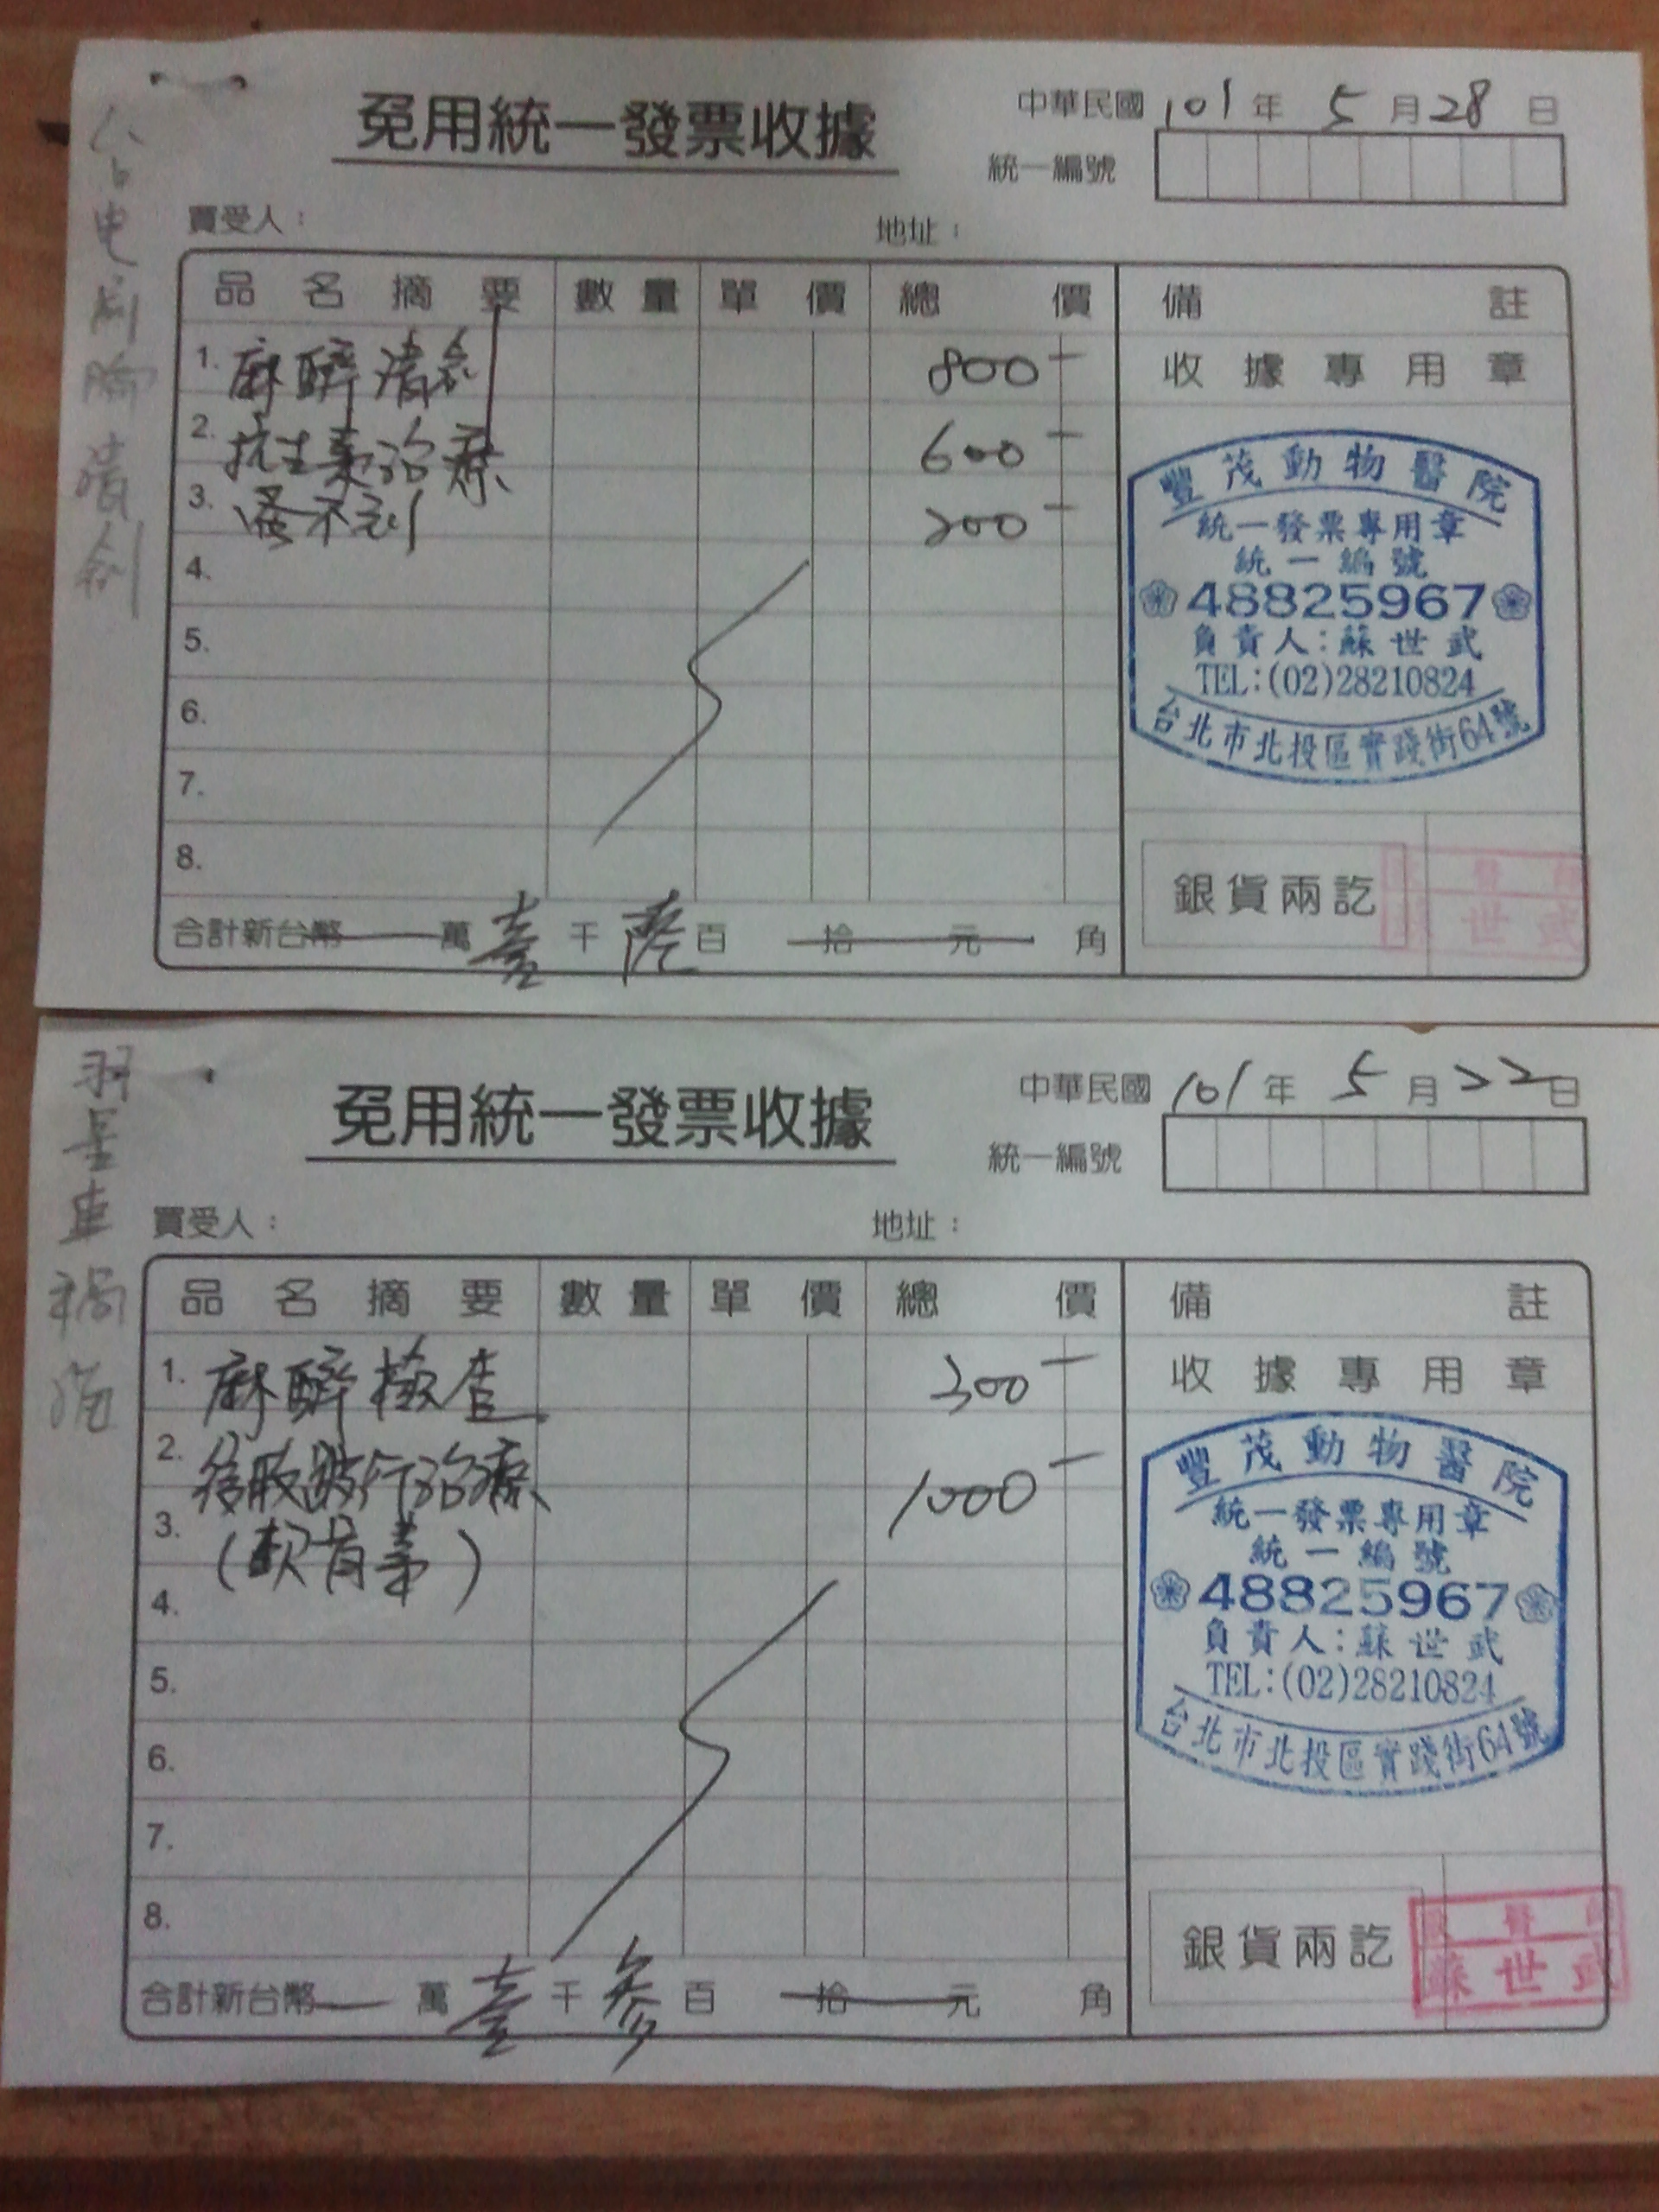 免用統一發票收據
中華民國 101 年 5 月 28 日
統一編號
買受人：
地址：
品名摘要 數量 單價 總價 備註
1. 麻醉清創 800
2. 抗生素治療 600
3. 蚤不到 200
4.
5.
6.
7.
8.
合計新台幣 萬 壹 千 陸 百 拾 元 角
收據專用章
豐茂動物醫院
統一發票專用章
統一編號
48825967
負責人:蘇世武
TEL:(02)28210824
台北市北投區實踐街64號
銀貨兩訖
世武
免用統一發票收據
中華民國 101 年 5 月 22 日
統一編號
買受人：
地址：
品名摘要 數量 單價 總價 備註
1. 麻醉檢查 300
2. 後肢跛行治療 1000
3. (軟骨素)
4.
5.
6.
7.
8.
合計新台幣 萬 壹 千 參 百 拾 元 角
收據專用章
豐茂動物醫院
統一發票專用章
統一編號
48825967
負責人:蘇世武
TEL:(02)28210824
台北市北投區實踐街64號
銀貨兩訖
蘇世武